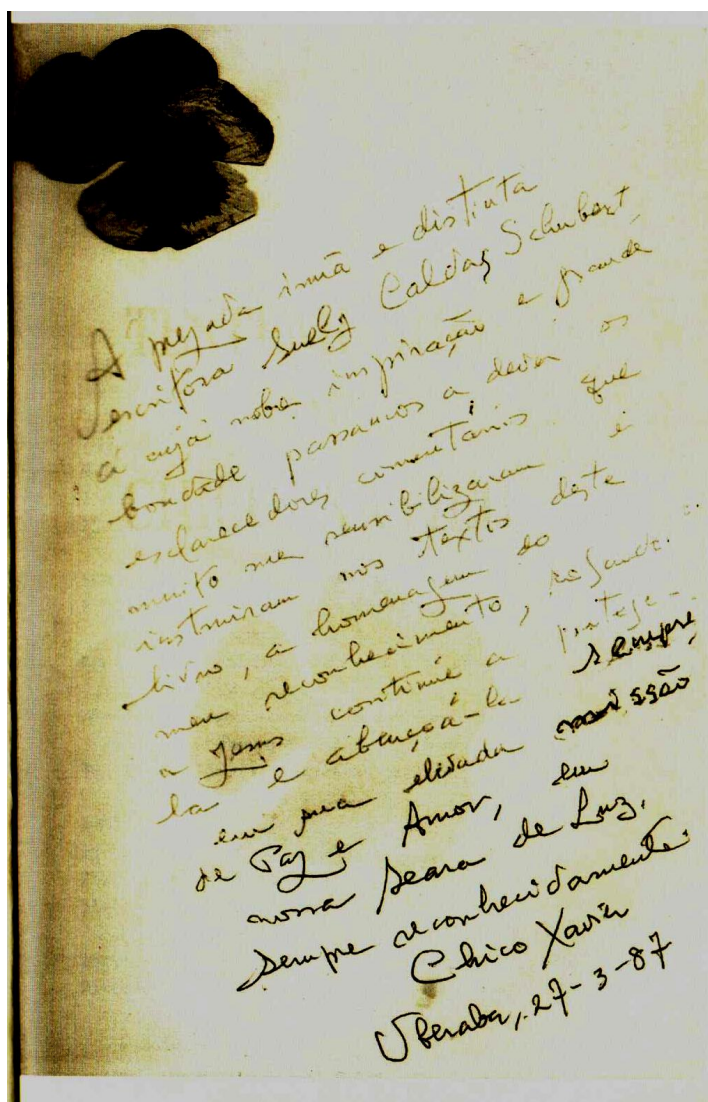 À prezada irmã e distinta
escritora Suely Caldas Schubert,
a cuja nobre inspiração e grande
bondade passamos a dever os
esclarecedores comentários que
muito me sensibilizaram e
instruiram nos textos deste
livro, a homenagem do
meu reconhecimento, rogando
a Jesus continue a protege-
la e abençoá-la sempre
em sua elevada missão
de Paz e Amor, em
nossa Seara de Luz.
Sempre reconhecidamente.
Chico Xavier
Uberaba, 27-3-87